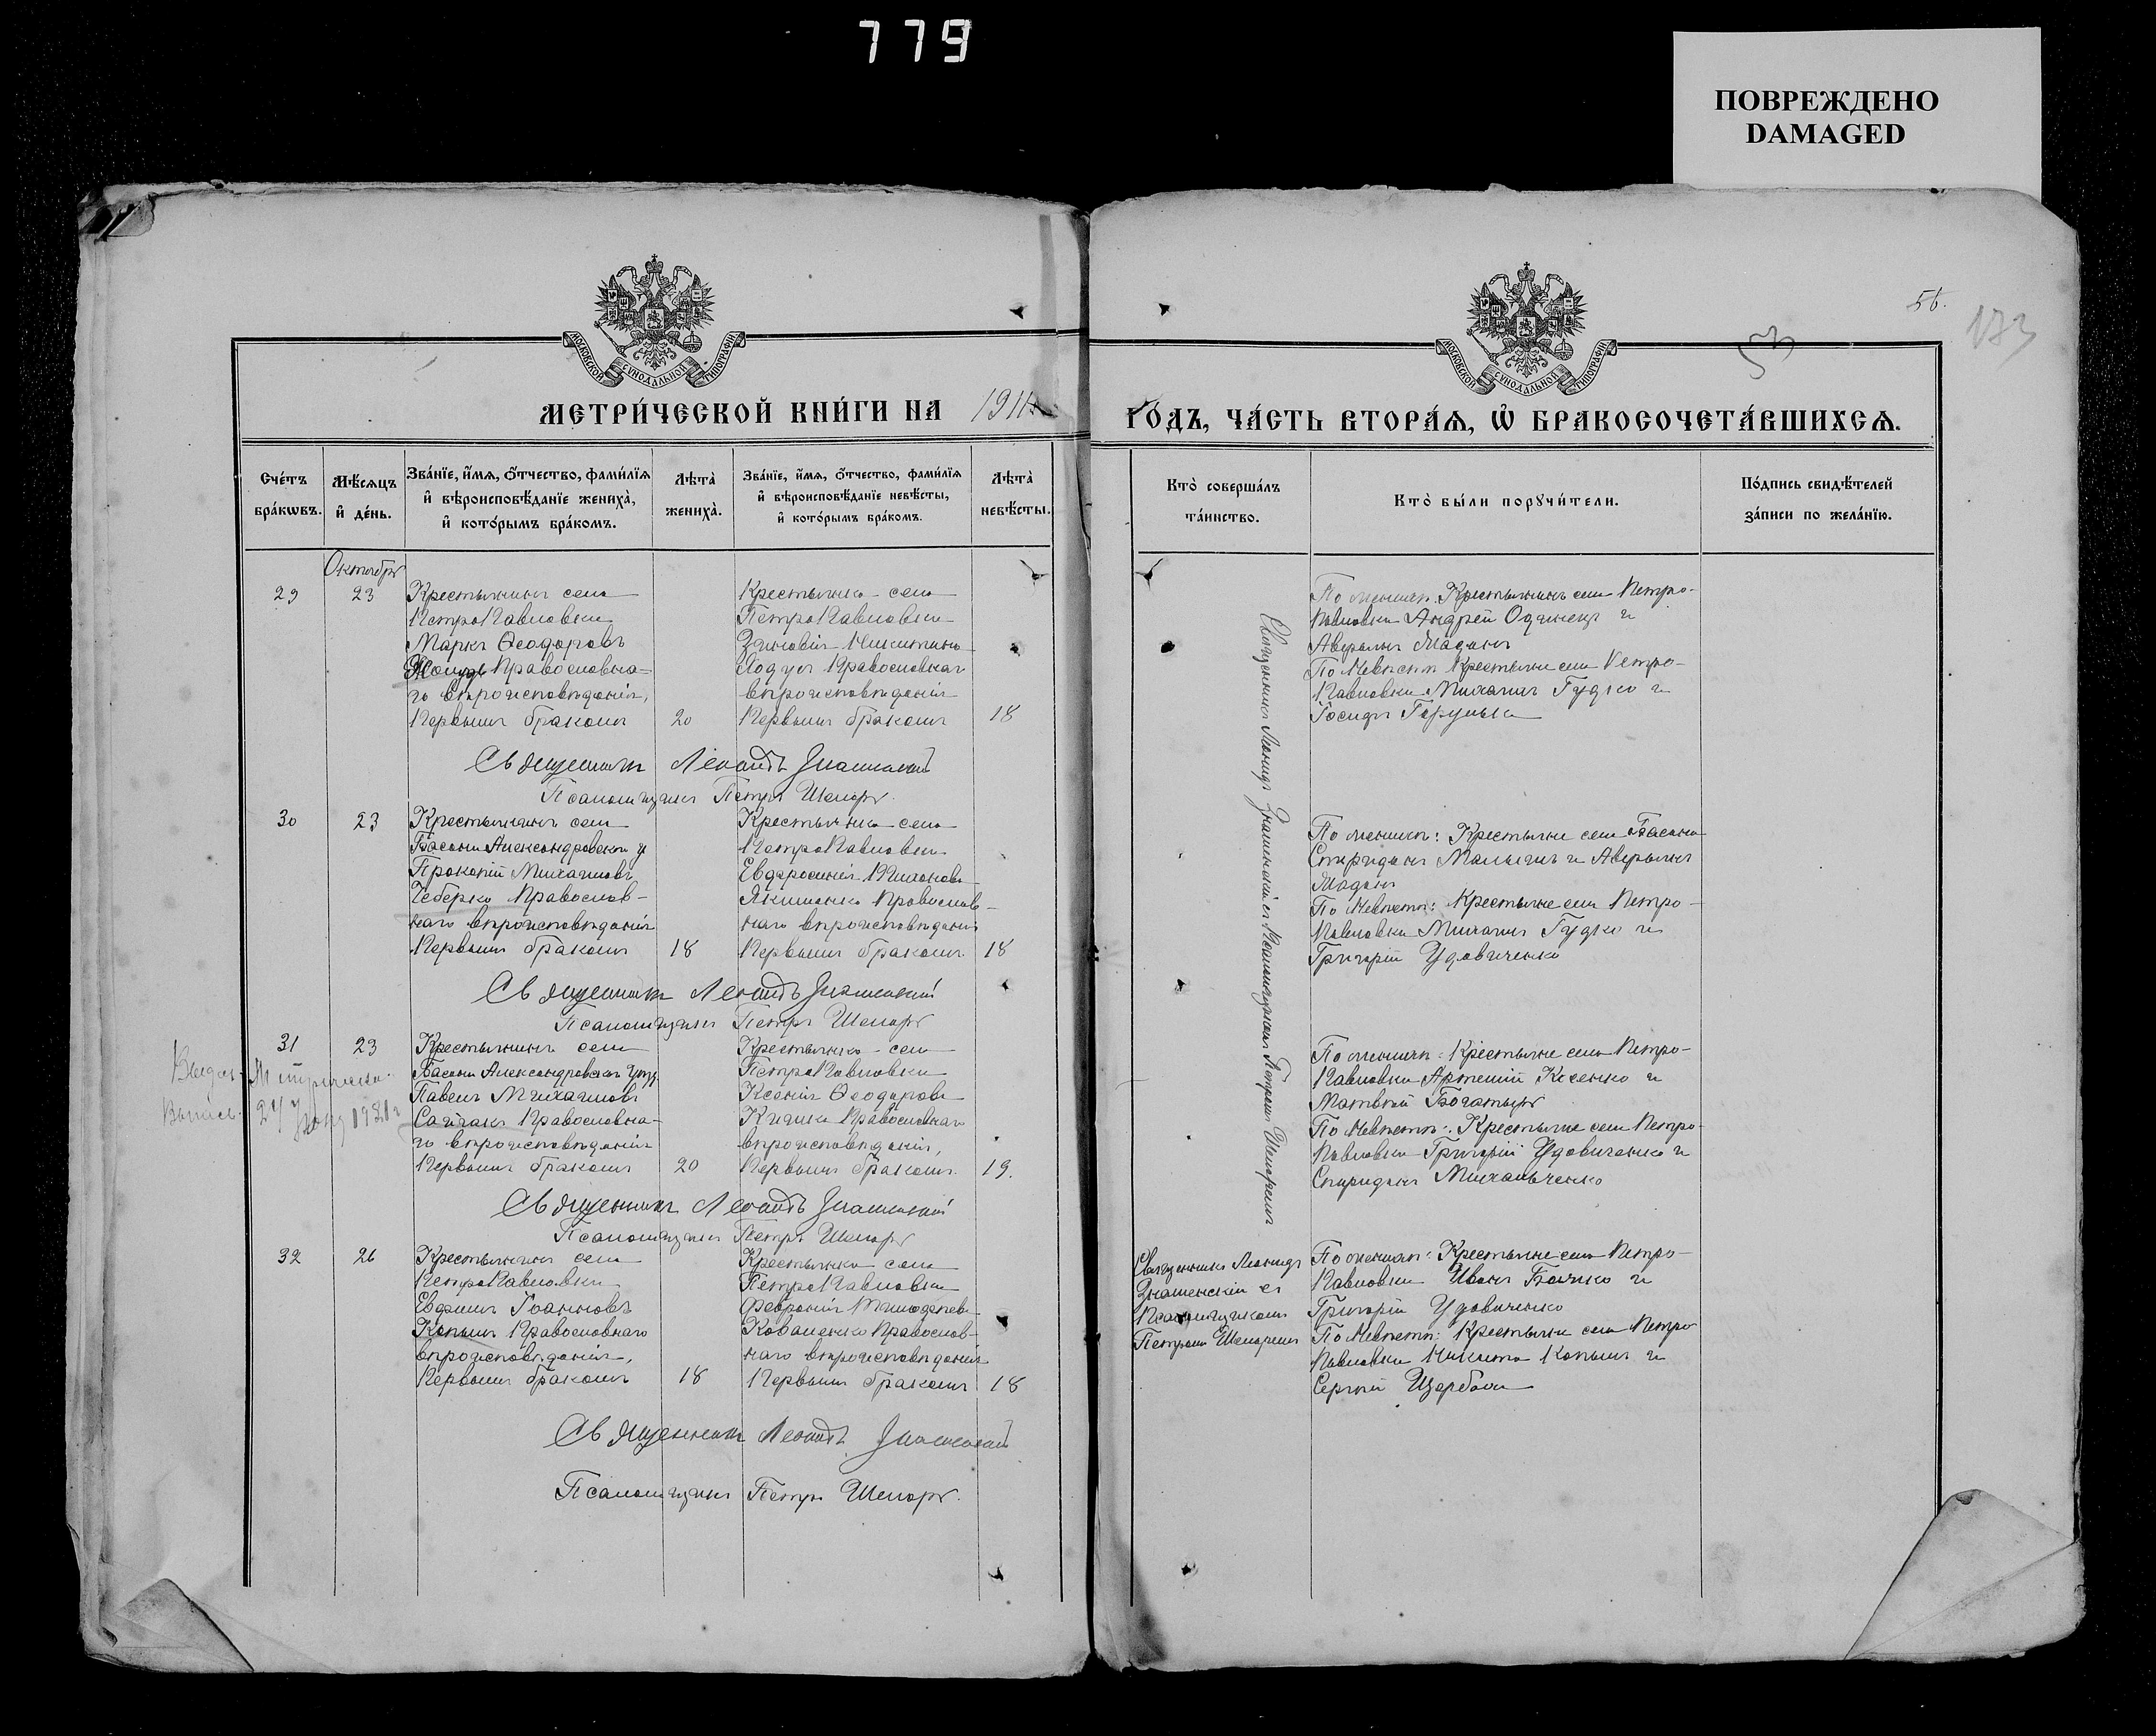 779
ПОВРЕЖДЕНО
DAMAGED
56.
173
53
МОСКОВСКОЙ СѴНОДАЛЬНОЙ ТИПОГРАФІИ
МОСКОВСКОЙ СѴНОДАЛЬНОЙ ТИПОГРАФІИ
МЕТРИ́ЧЕСКОЙ КНИ́ГИ НА 1911
ГОДЪ, ЧА́СТЬ ВТОРА́Ѧ, Ѡ҆ БРАКОСОЧЕТА́ВШИХСѦ.
Сче́тъ бра́кѡвъ.
Мѣ́сѧцъ и҆ де́нь.
Зва́нїе, и҆́мѧ, ѻ҆́тчество, фами́лїѧ
и҆ вѣроисповѣ́данїе жениха̀,
и҆ кото́рымъ бра́комъ.
Лѣта̀ жениха̀.
Зва́нїе, и҆́мѧ, ѻ҆́тчество, фами́лїѧ
и҆ вѣроисповѣ́данїе невѣ́сты,
и҆ кото́рымъ бра́комъ.
Лѣта̀ невѣ́сты.
Кто̀ соверша́лъ
та́инство.
Кто̀ бы́ли порꙋчи́тели.
По́дпись свидѣ́телей
за́писи по жела́нїю.
Октябрь
29
23
Крестьянинъ села
ПетроПавловки
Маркъ Ѳеодоровъ
Православна=
го вѣроисповѣданія,
Первымъ бракомъ
20
Крестьянка села
ПетроПавловки
Зиновія Никитина
Православнаго
вѣроисповѣданія
Первымъ бракомъ
18
По женихѣ: Крестьянинъ села Петро-
Павловки Андрей Одинецъ и
Аверьянъ Мадонъ
По Невѣстѣ Крестьяне села Петро-
Павловки Михаилъ Гудко и
Іосифъ
Священникъ Леонидъ Знаменскій
Псаломщикъ Петръ Шепаръ.
30
23
Крестьянинъ села
Басани Александровскаго у
Прокопій Михаиловъ
Чеберко Православ-
наго вѣроисповѣданія
Первымъ бракомъ
18
Крестьянка села
ПетроПавловки
Евфросинія
Якименко Православ-
наго вѣроисповѣданія
Первымъ бракомъ
18
По женихѣ: Крестьяне села Басани
Спиридонъ Малыгинъ и Аверьянъ
Мадонъ
По Невѣстѣ: Крестьяне села Петро-
Павловки Михаилъ Гудко и
Григорій Удовиченко
Священникъ Леонидъ Знаменскій
Псаломщикъ Петръ Шепаръ
31
23
Крестьянинъ села
Басани Александровскаго
Павелъ Михаиловъ
Сайгакъ Православна-
го вѣроисповѣданія
Первымъ бракомъ
20
Крестьянка села
ПетроПавловки
Ксенія Ѳеодорова
Православнаго
вѣроисповѣданія,
Первымъ бракомъ.
19.
По женихѣ: Крестьяне села Петро-
Павловки Артемій Косенко и
Матвѣй Богатырь
По Невѣстѣ: Крестьяне села Петро-
Павловки Григорій Удовиченко и
Спиридонъ Михальченко
Священникъ Леонидъ Знаменскій
Псаломщикъ Петръ Шепаръ
32
26
Крестьянинъ села
ПетроПавловки
Евфимъ Іоанновъ
Копылъ Православнаго
вѣроисповѣданія,
Первымъ бракомъ
18
Крестьянка села
ПетроПавловки
Февронія
Коваленко Православ-
наго вѣроисповѣданія
Первымъ бракомъ
18
Священникъ Леонидъ
Знаменскій съ
Псаломщикомъ
Петромъ Шепаремъ
По женихѣ: Крестьяне села Петро-
Павловки Иванъ Бачко и
Григорій Удовиченко
По Невѣстѣ: Крестьяне села Петро
Павловки Никита Копылъ и
Сергѣй Щербак
Священникъ Леонидъ Знаменскій
Псаломщикъ Петръ Шепаръ.
Священникъ Леонидъ Знаменскій съ Псаломщикомъ Петромъ Шепаремъ